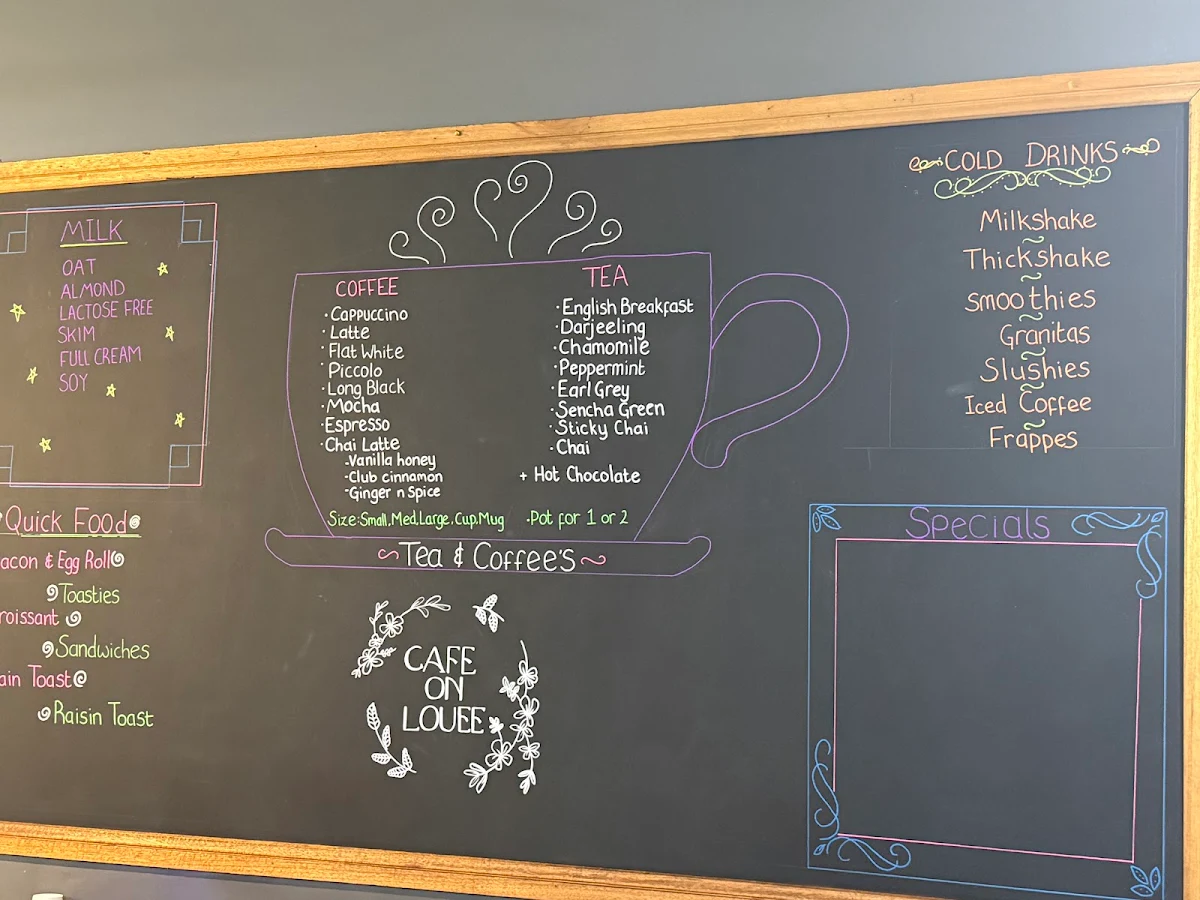 MILK
OAT
ALMOND
LACTOSE FREE
SKIM
FULL CREAM
SOY
Quick Food
acon & Egg Roll
Toasties
roissant
Sandwiches
ain Toast
Raisin Toast
COFFEE
· Cappuccino
· Latte
· Flat White
· Piccolo
· Long Black
· Mocha
· Espresso
· Chai Latte
-Vanilla honey
-Club cinnamon
-Ginger n Spice
TEA
· English Breakfast
· Darjeeling
· Chamomile
· Peppermint
· Earl Grey
· Sencha Green
· Sticky Chai
· Chai
+ Hot Chocolate
Size: Small, Med, Large, Cup, Mug ·Pot for 1 or 2
~Tea & Coffee's~
CAFE
ON
LOUEE
COLD DRINKS
Milkshake
~
Thickshake
~
Smoothies
~
Granitas
~
Slushies
~
Iced Coffee
~
Frappes
Specials